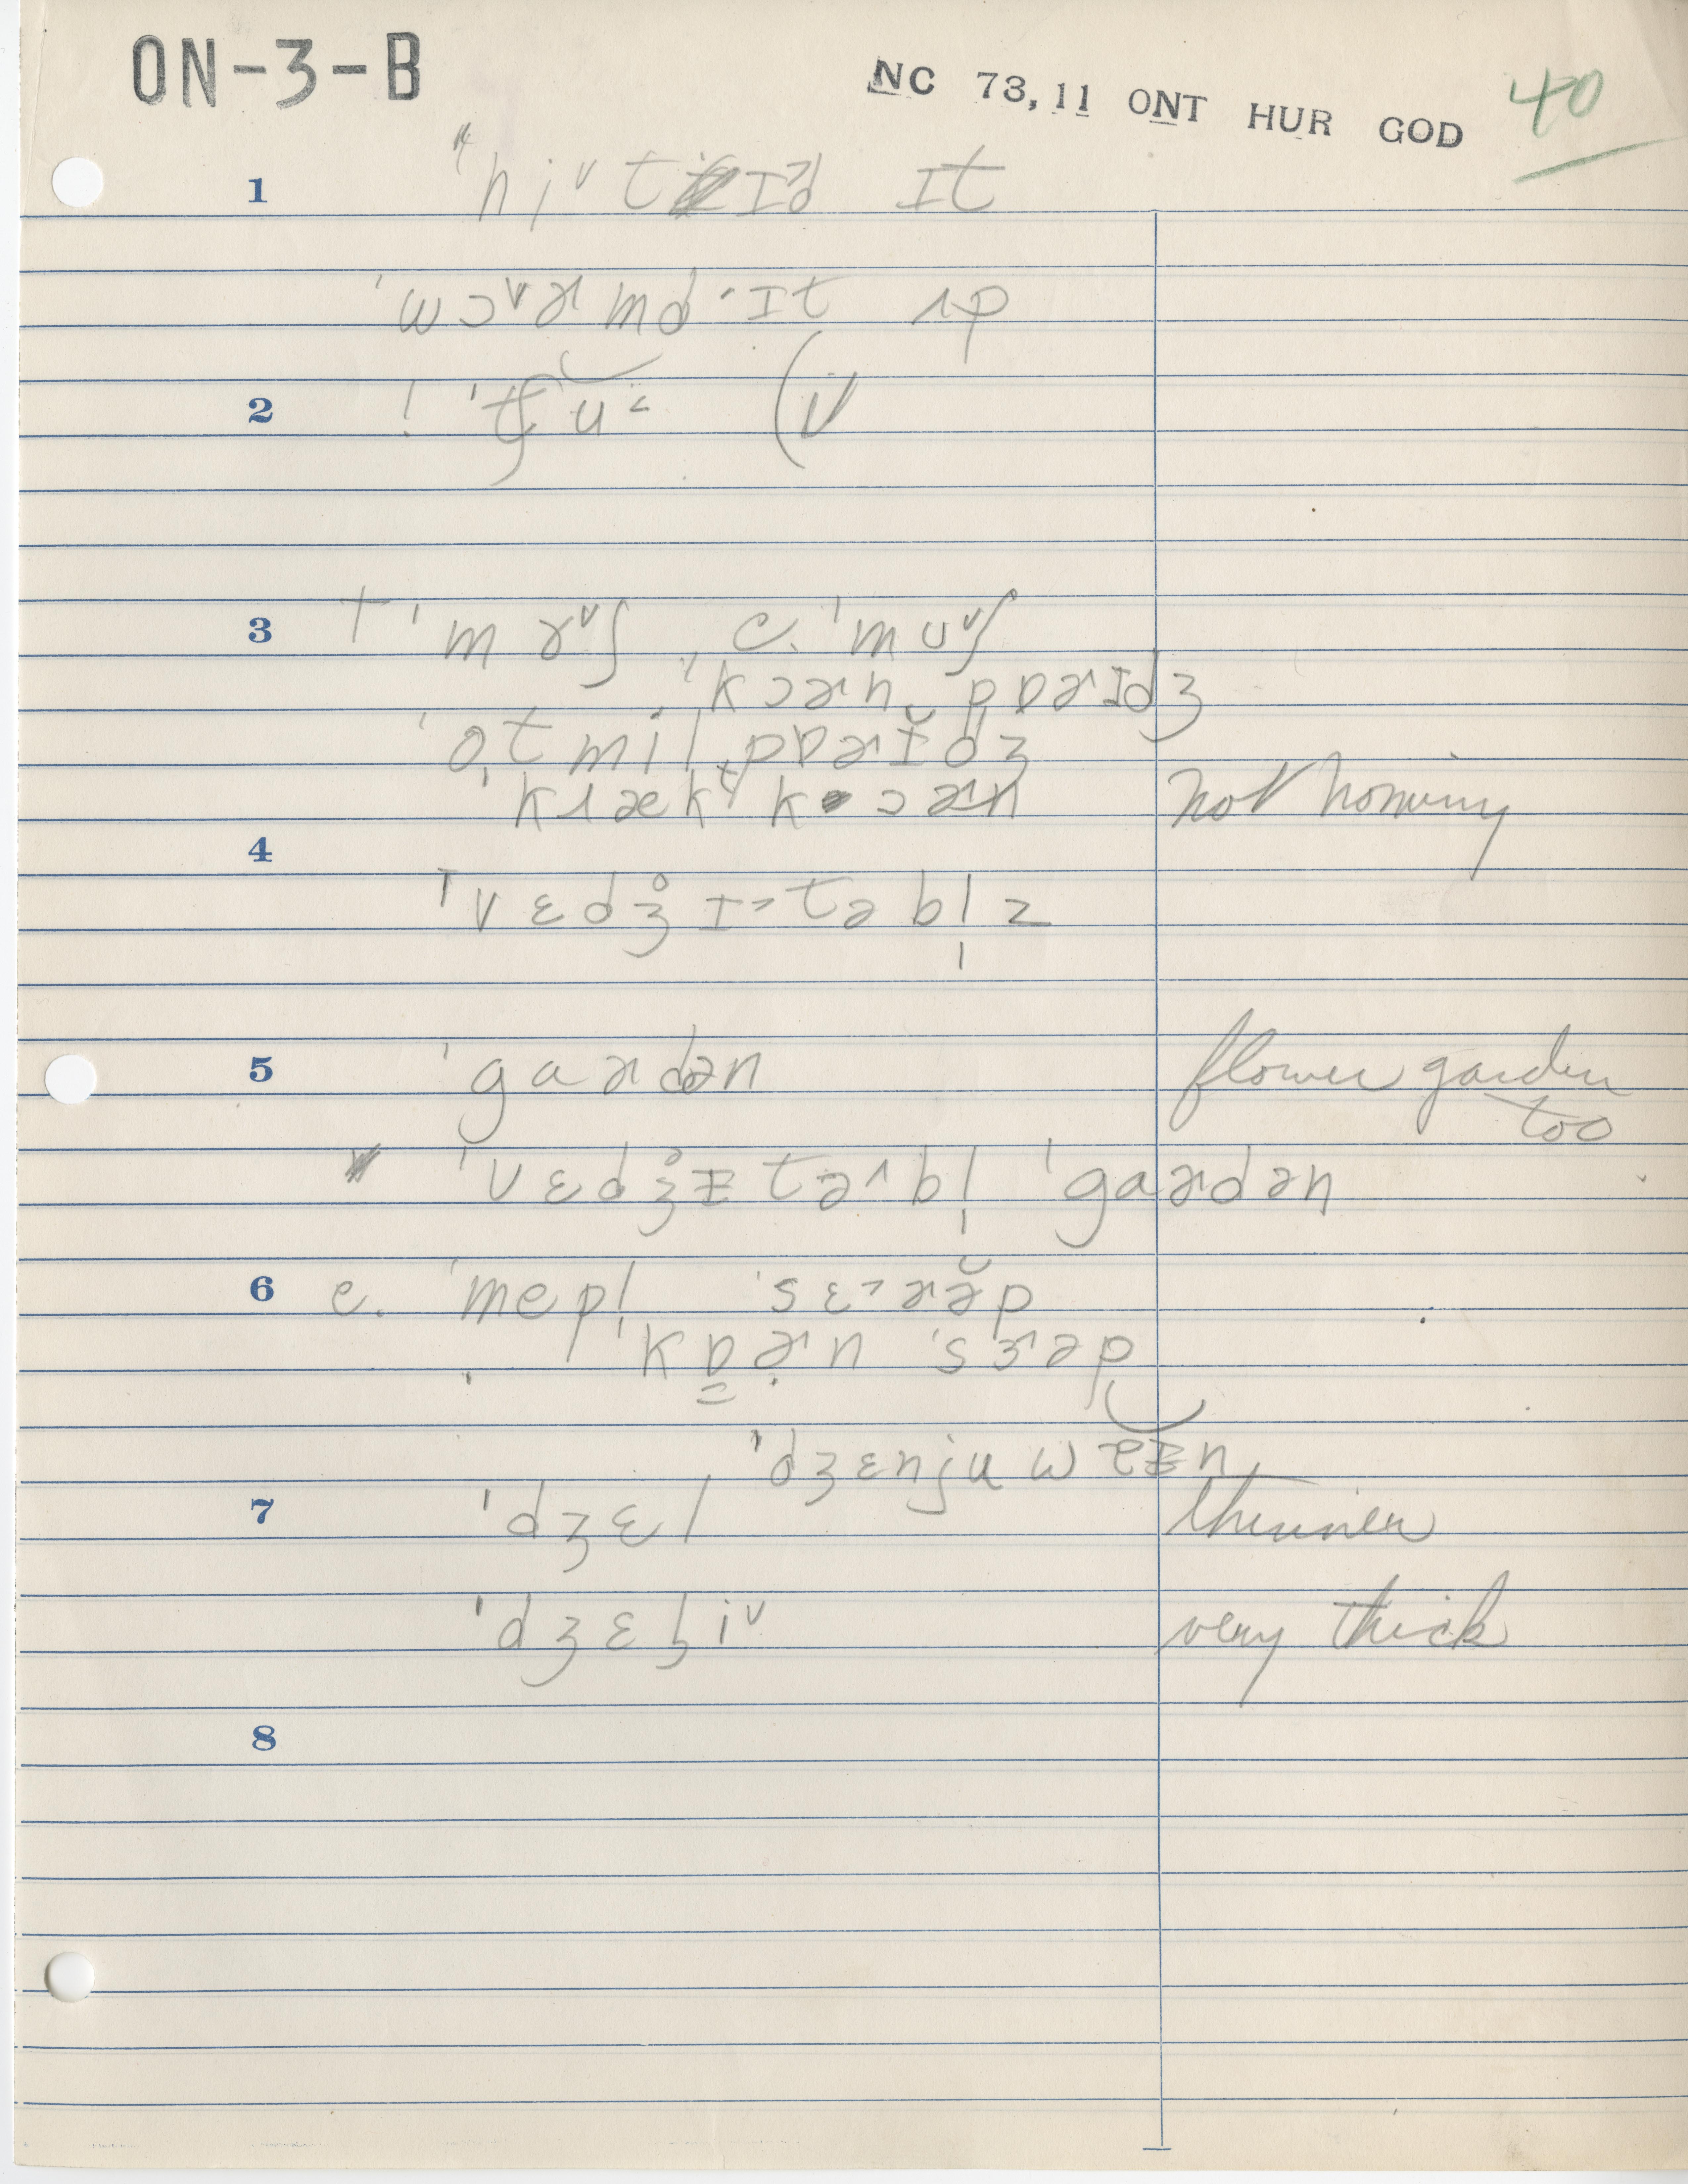 ON-3-B
NC 73,11 ONT HUR GOD 40
1 hiᵛ tɪd ɪt
ˈwɔᵛɚmd ɪt ʌp
2 ! ˈtʃu (iᵛ
3 † ˈmʌᵛʃ, c. ˈmʊᵛʃ
ˌkɔɚn pɒɚɪdʒ
ˈotmil pɒɚɪ̆dʒ
ˌkrækt kɔɚn not hominy
4
ˈvɛdʒ̊ɪtəbl̩z
5 ˈgaɚdən flower garden
too
ˈvɛdʒ̊ɪtəbl̩ ˈgaɚdən
6 c. ˈmepl̩ ˌsɛɚə̆p
ˈkɒɚn ˌsɜəp
ˈdʒɛnjuwɪn
7 ˈdʒɛl thinner
ˈdʒɛɫiᵛ very thick
8